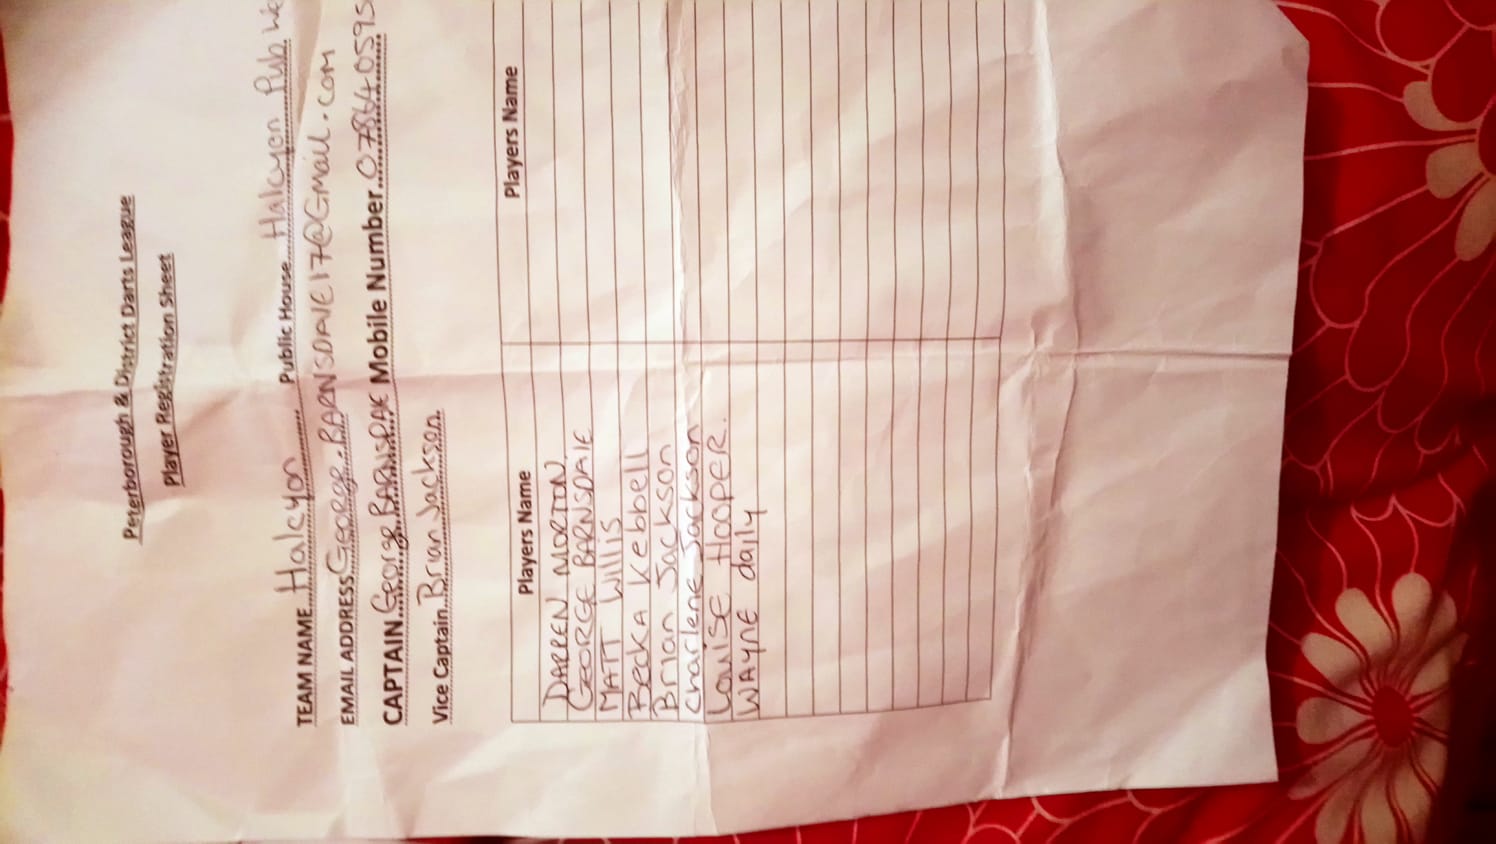 Peterborough & District Darts League
Player Registration Sheet
TEAM NAME Halcyon Public House Halcyon Pub
EMAIL ADDRESS George.BARNSDALE17@Gmail.com
CAPTAIN George BARNSDALE Mobile Number 078640595
Vice Captain Brian Jackson
Players Name Players Name
DARREN MORTON
GEORGE BARNSDALE
MATT WILLIS
BECKA KEbbell
Brian Jackson
Charlene Jackson
Louise HOOPER.
WAYNE daily